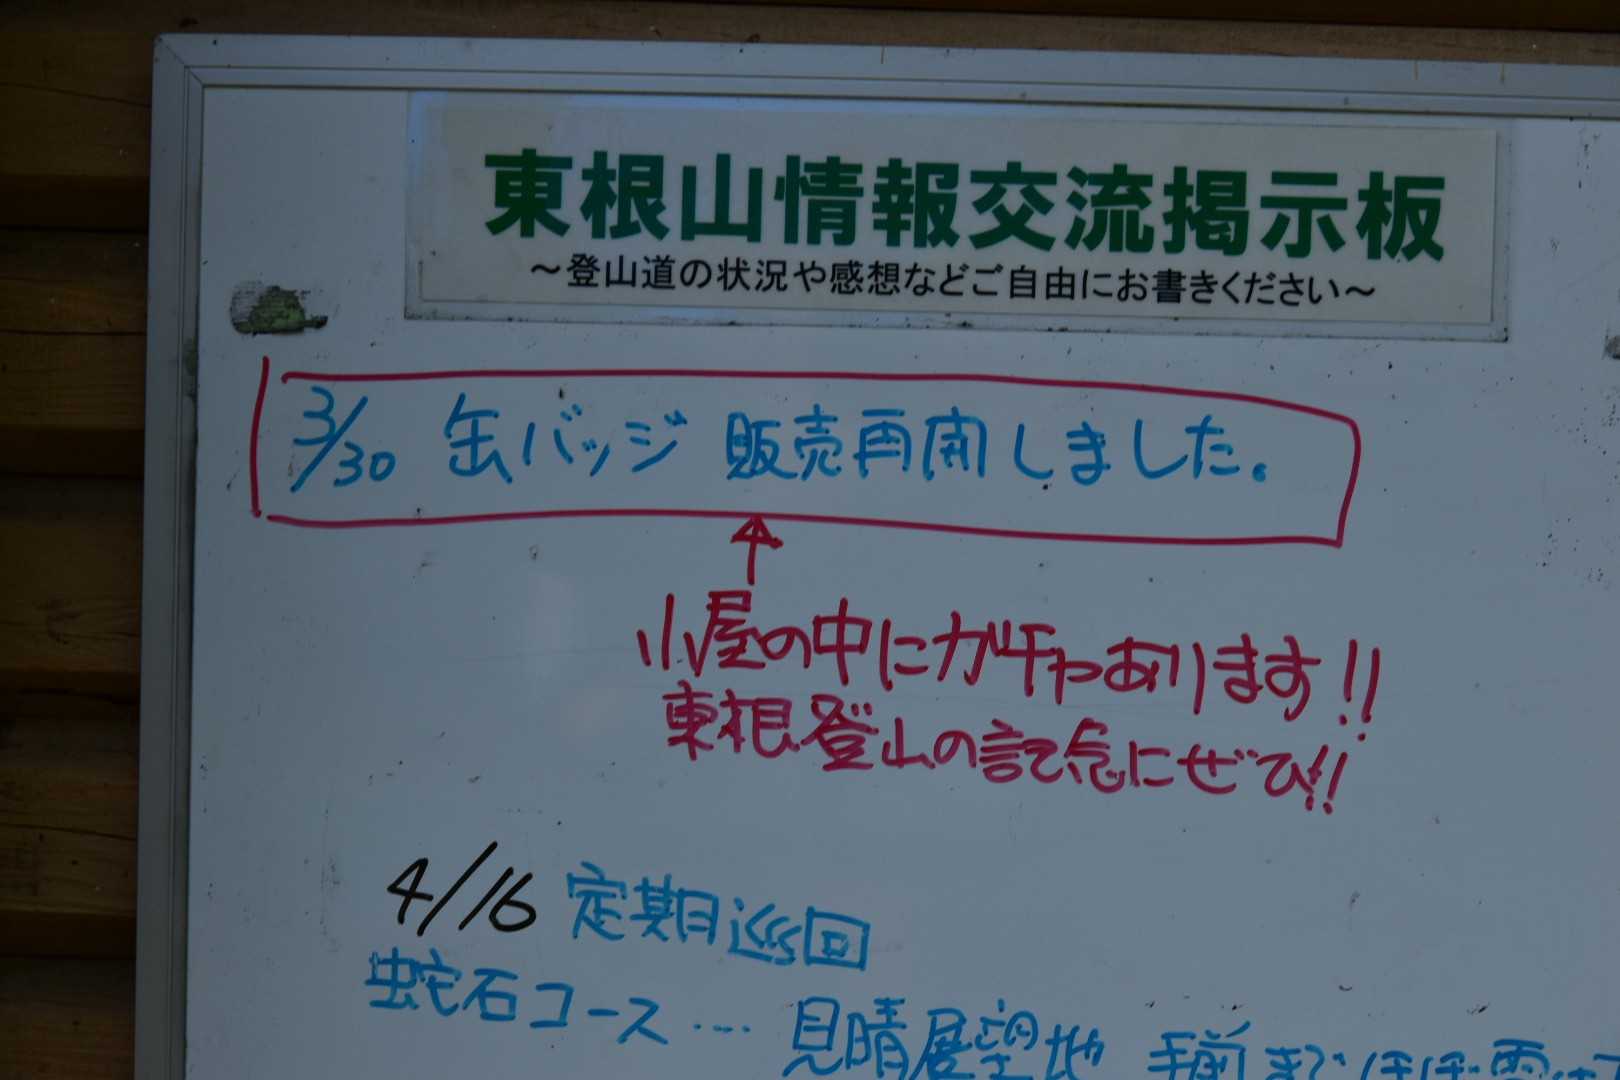 東根山情報交流掲示板
～登山道の状況や感想などご自由にお書きください～
3/30 缶バッジ 販売再開しました。
小屋の中にガチャあります!!
東根登山の記念にぜひ!!
4/16 定期巡回
蛇石コース… 見晴展望地 手前まで